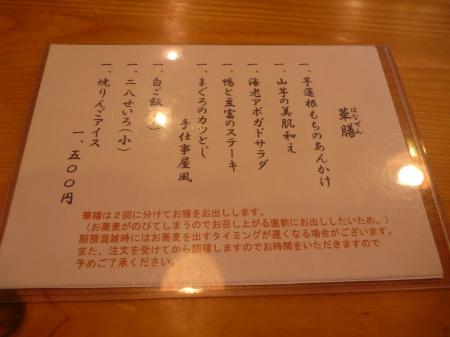 はなぜん
華膳
一、芋蓮根もちのあんかけ
一、山芋の美肌和え
一、海老アボガドサラダ
一、鴨と豆富のステーキ
一、まぐろのカツとじ
手仕事屋風
一、白ご飯( )
一、二八せいろ(小)
一、焼りんごアイス
一、五〇〇円
華膳は2回に分けてお膳をお出しします。
(お蕎麦がのびてしまうのでお召し上がる直前にお出ししたいため。)
厨房混雑時にはお蕎麦を出すタイミングが遅くなる場合がございます。
また、注文を受けてから調理しますのでお時間をいただきますので
予めご了承ください。